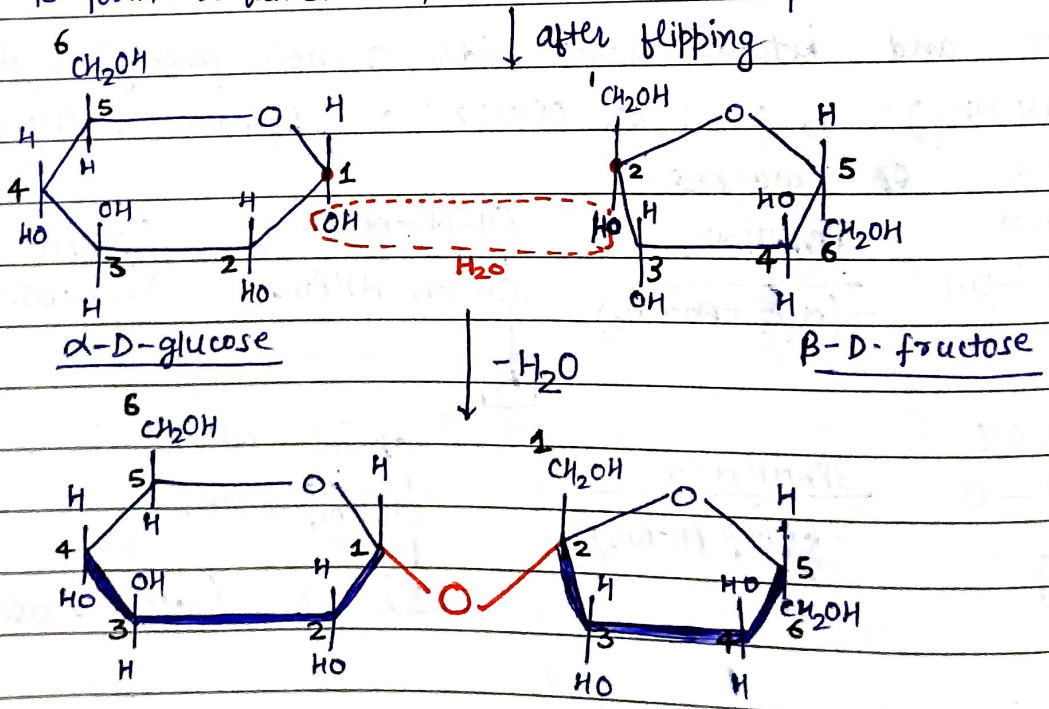 after flipping
6
CH2OH
5
O
H
H
H
4
1
OH
H
OH
HO
3
2
H
HO
α-D-glucose
H2O
1
CH2OH
O
H
2
5
HO
H
HO
CH2OH
3
4
6
OH
H
β-D-fructose
-H2O
6
CH2OH
5
O
H
H
H
4
1
OH
H
HO
3
2
H
HO
O
1
CH2OH
O
H
2
5
H
HO
CH2OH
3
4
6
HO
H